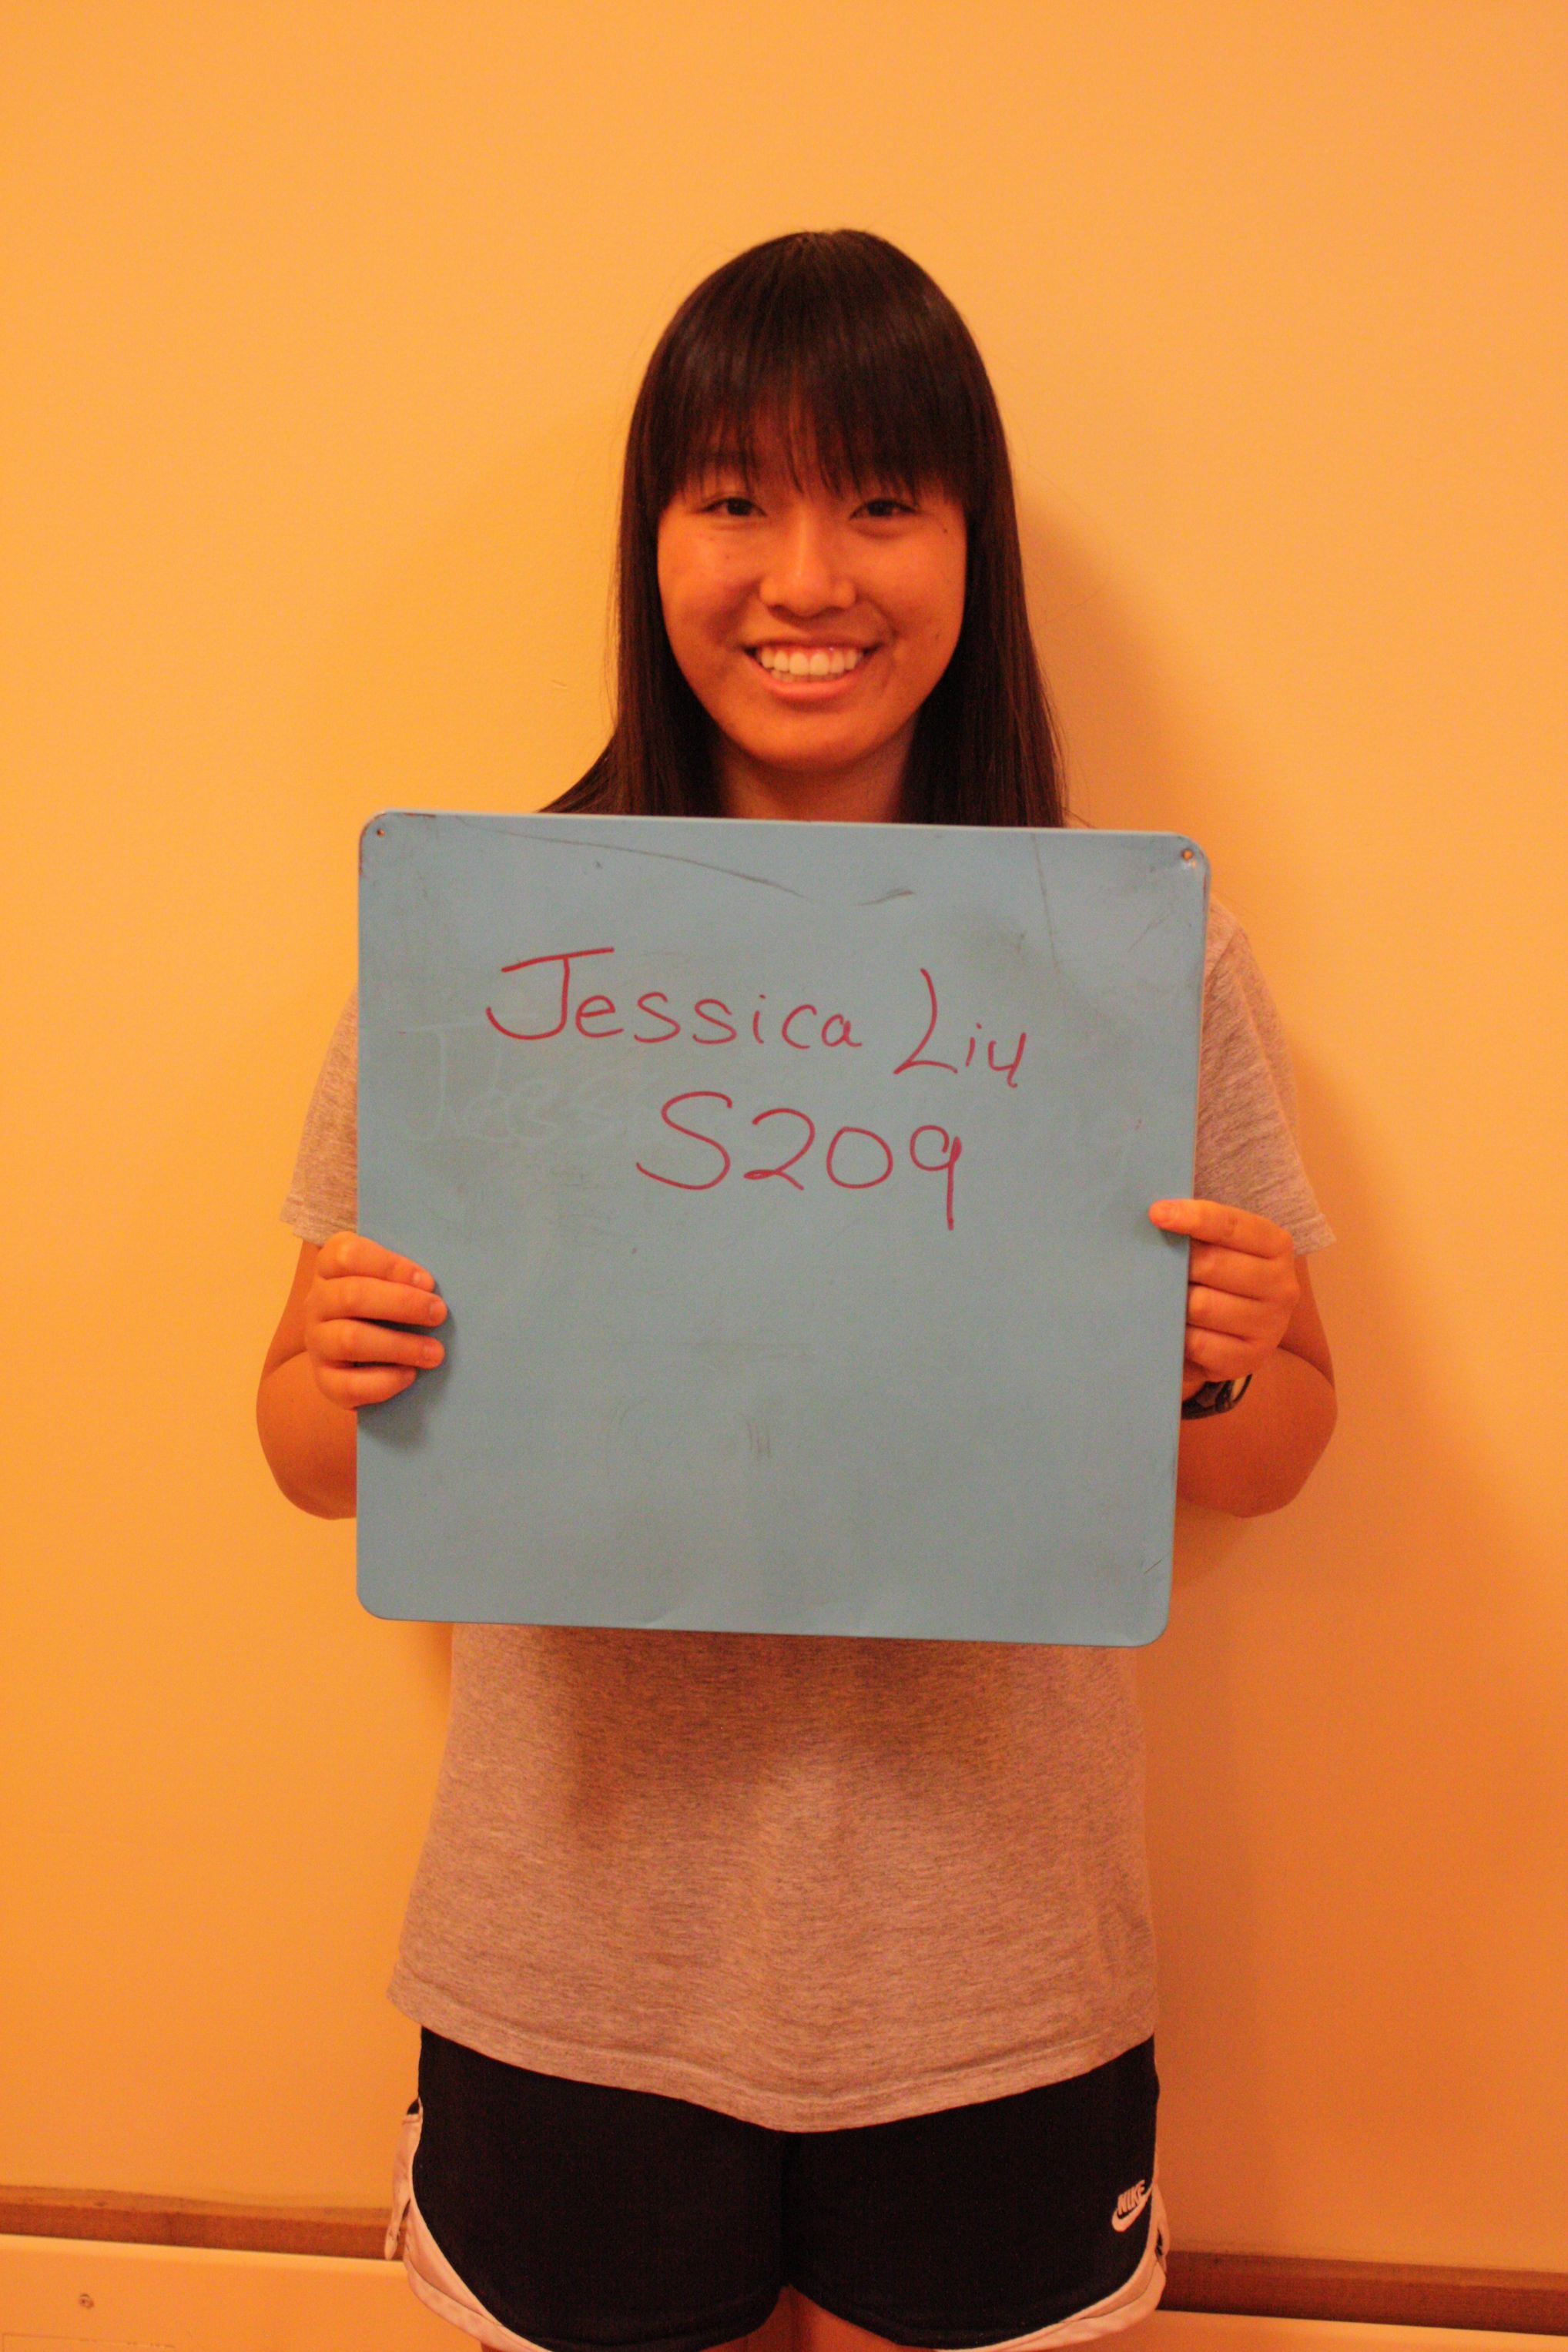 Jessica Liu
S209
NIKE